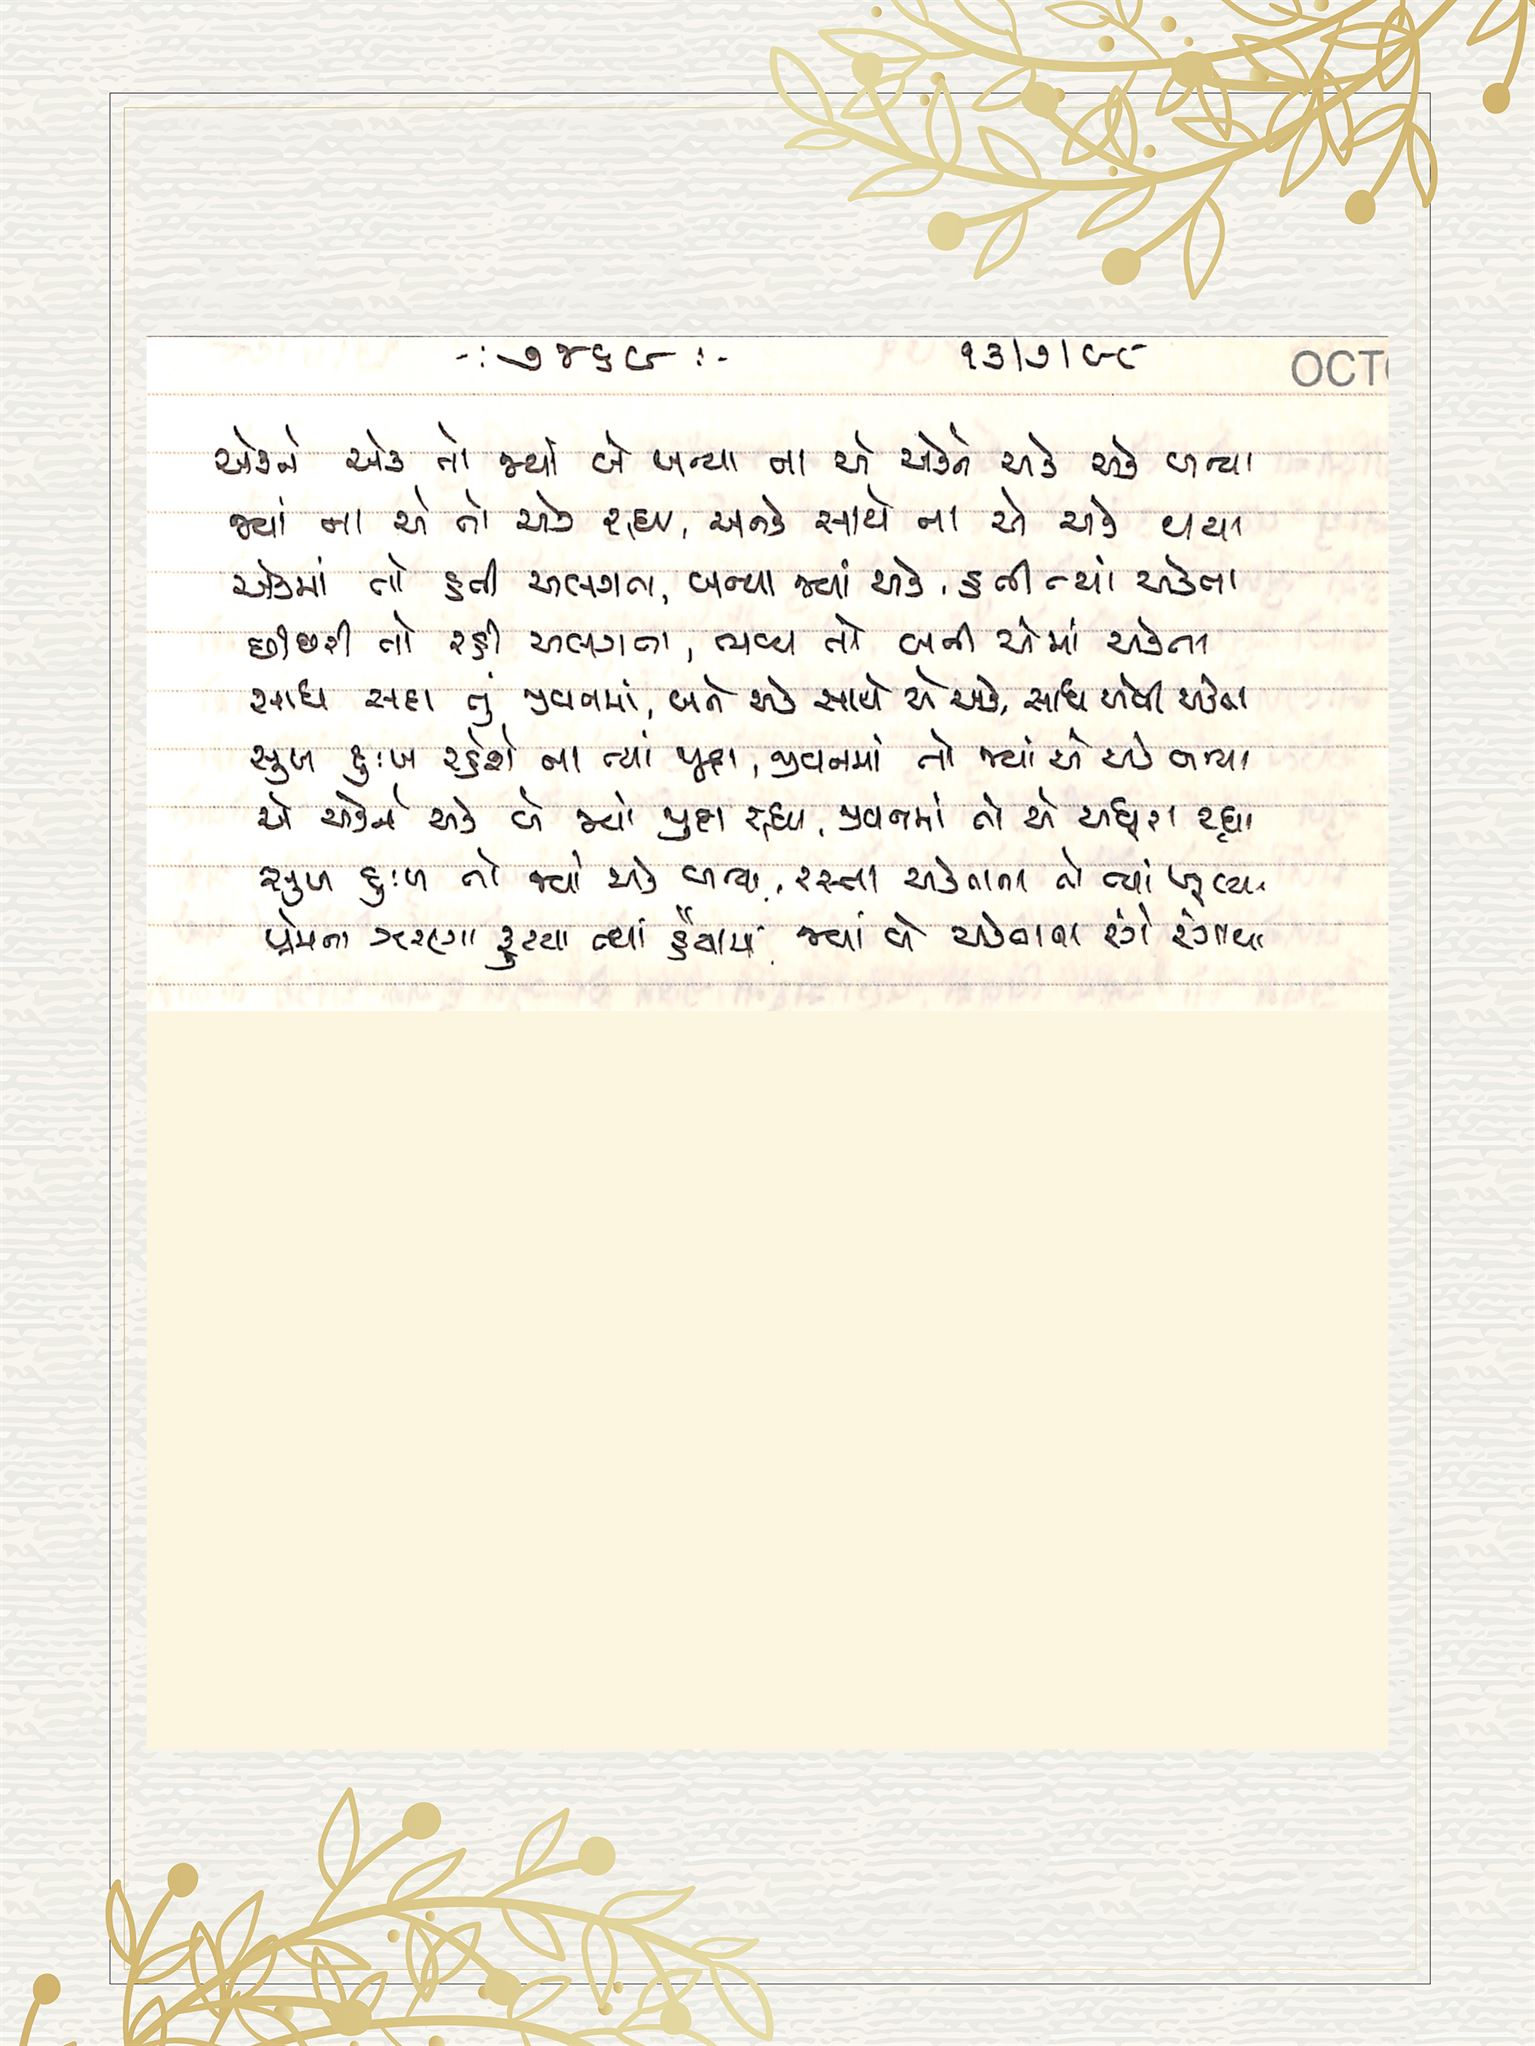 -: ૭૪૬૯ :-
૧૩|૭|૯૮
OCT
એકને એક તો જ્યાં બે બન્યા ના એ એકને એક એક બન્યા
જ્યાં ના એ તો એક રહ્યા, અનેક સાથે ના એ એક થયા
એકમાં તો હતી અલગતા, બન્યા જ્યાં એક, હતી ત્યાં એકતા
તો રહી અલગતા, તો બની એમાં એકતા
સાધ સદા તું જીવનમાં, બને એક સાથે એ એક, સાધ એવી એકતા
સુખ દુઃખ રહેશે ના ત્યાં જુદા, જીવનમાં તો જ્યાં એ એક બન્યા
એ એકને એક બે જ્યાં જુદા રહ્યા, જીવનમાં તો એ અધૂરા રહ્યા
સુખ દુઃખ તો જ્યાં એક બન્યા, રસ્તા એકતાના તો ત્યાં ખૂલ્યા
પ્રેમના ઝરણા ફૂટયા ત્યાં હૈયામાં, જ્યાં બે એકતાના રંગે રંગાયા